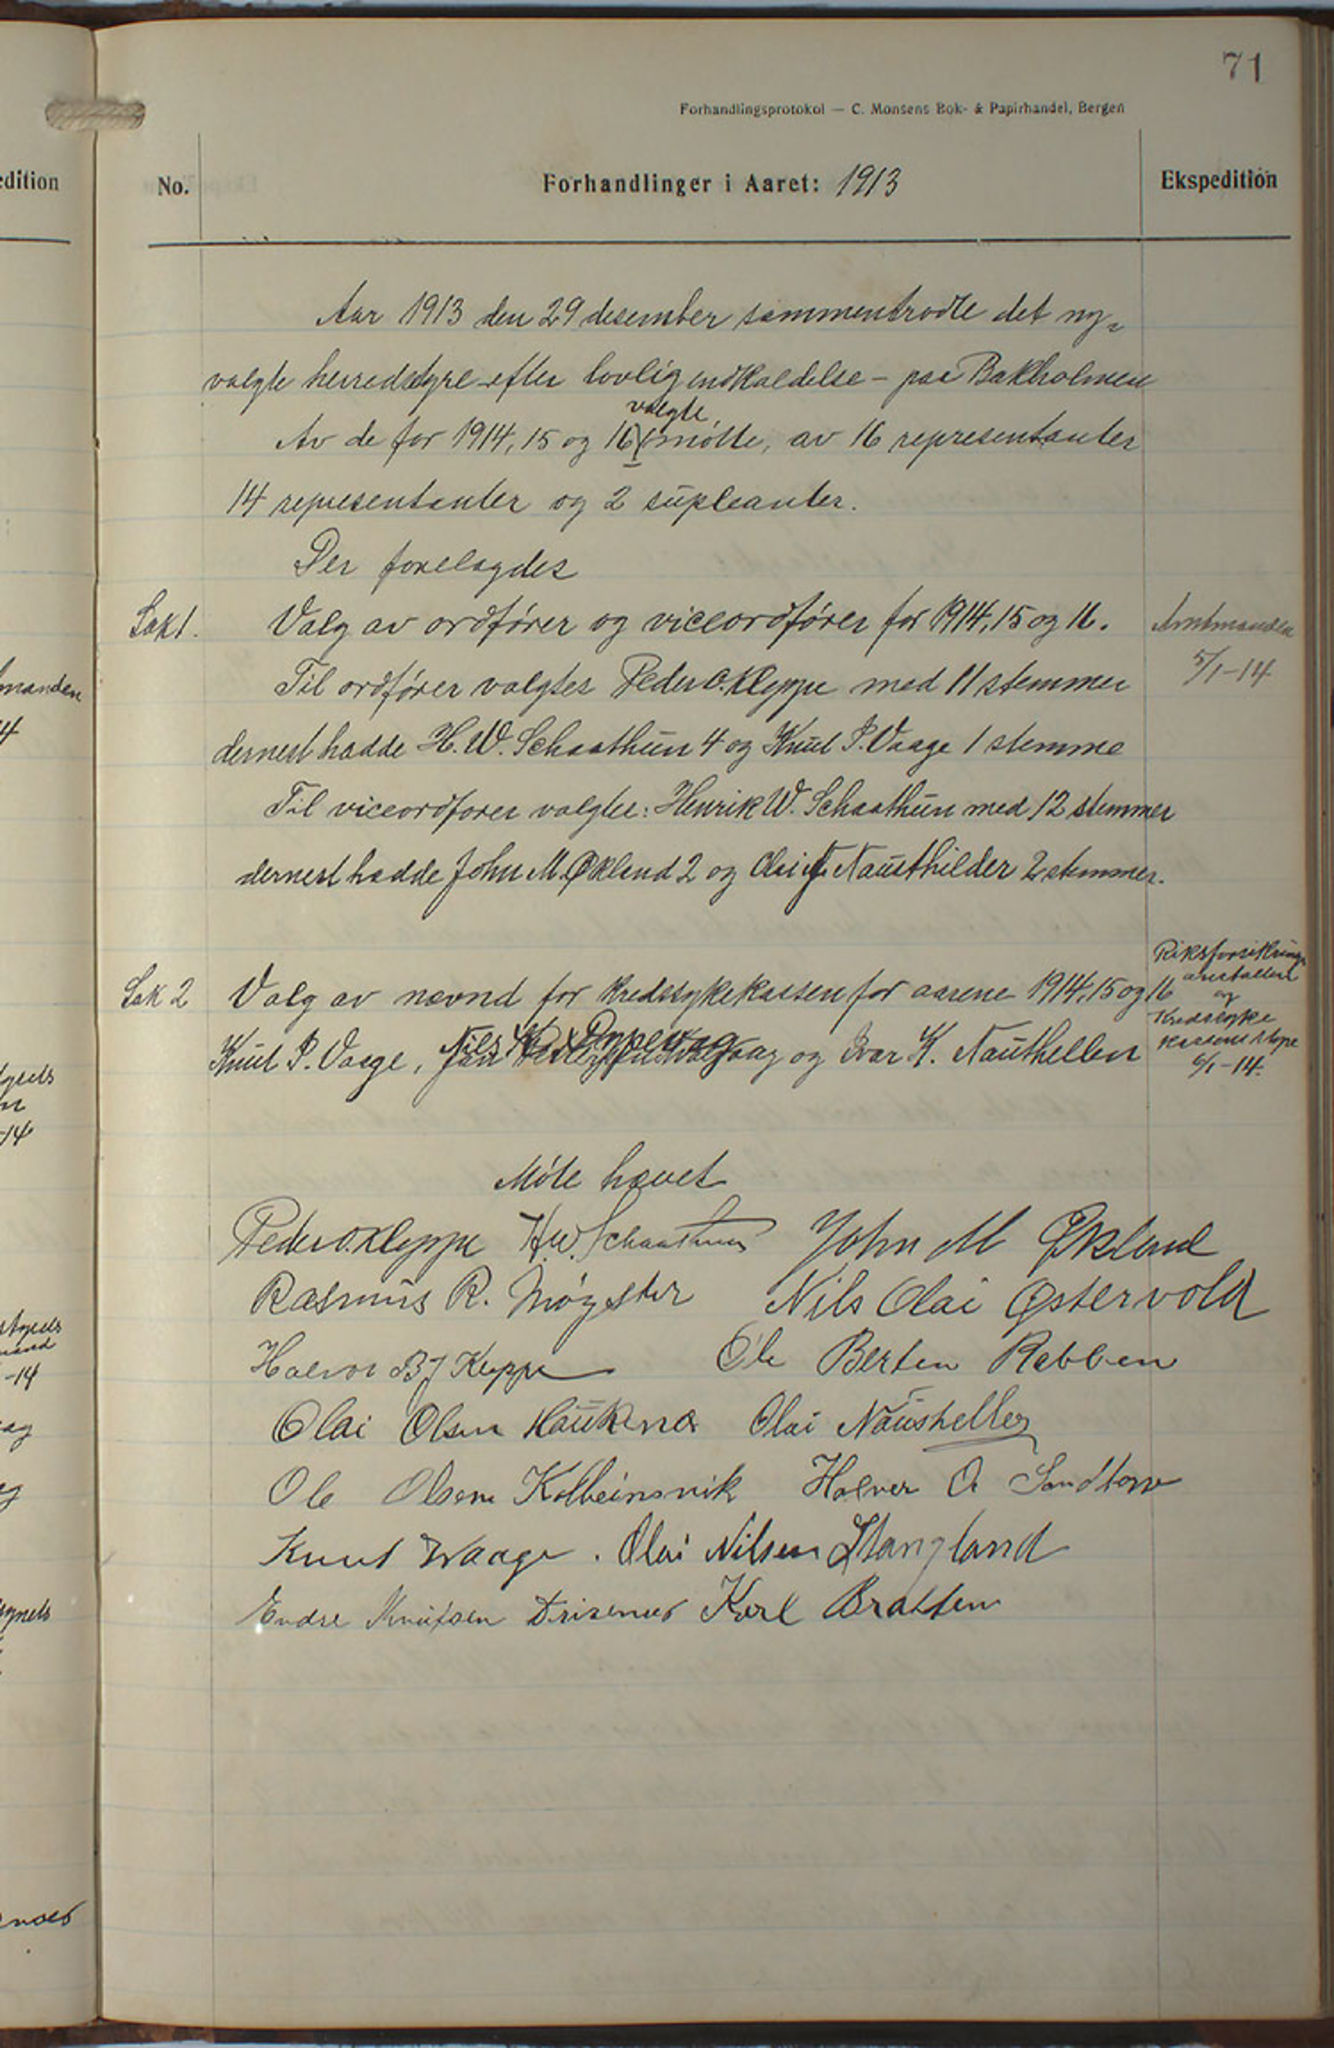 71
Forhandlingsprotokol — C. Monsens Bok- & Papirhandel, Bergen
edition
No.
Forhandlinger i Aaret: 1913
Ekspedition
Aar 1913 den 29 desember sammentraate det ny=
valgte herredstyre efter lovlig indkaldelse - paa Bakholmen
valgte
Av de for 1914, 15 og 16 møtte, av 16 representanter
14 representanter og 2 supleanter.
Der forelagdes
Sak 1.
Valg av ordfører og viceordfører for 1914, 15 og 16.
Amtmanden
5/1-14
Til ordfører valgtes Peder O. Kleppe med 11 stemmer
dernest hadde H. W. Schaathun 4 og Knut P. Vaage 1 stemme
Til viceordfører valgtes: Henrik W. Schaathun med 12 stemmer
dernest hadde John M. Økland 2 og Olai Nausthilder 2 stemmer.
Riksforsikrings
anstalten
og
Kredssyke
kassens styre
6/1-14.
Sak 2
Valg av nævnd for kredssykekassen for aarene 1914, 15 og 16
Knut P. Vaage, Nils og Ivar K. Nauthellen
Møte hævet
Peder O. Kleppe H. W. Schaathun John M Økland
Rasmus R. Møgster Nils Olai Østervold
Halvor B J Kleppe Ole Berten Rabben
Olai Olsen Hauknæs Olai Nausheller
Ole Olsen Kolbeinsvik Halvor O Sandtorv
Knut Waage. Olai Nilsen Stangland
Endre Knutsen Drisenes Karl Bratten
manden
4
-14
-14